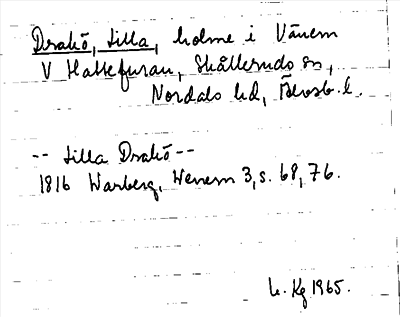 Drakö, Lilla, holme i Vänern
V Hattefuran, Skålleruds sn,
Nordals hd, Älvsb. l.
-- Lilla Drakö --
1816 Warberg, Wenern 3, s. 68, 76.
Kg 1965.